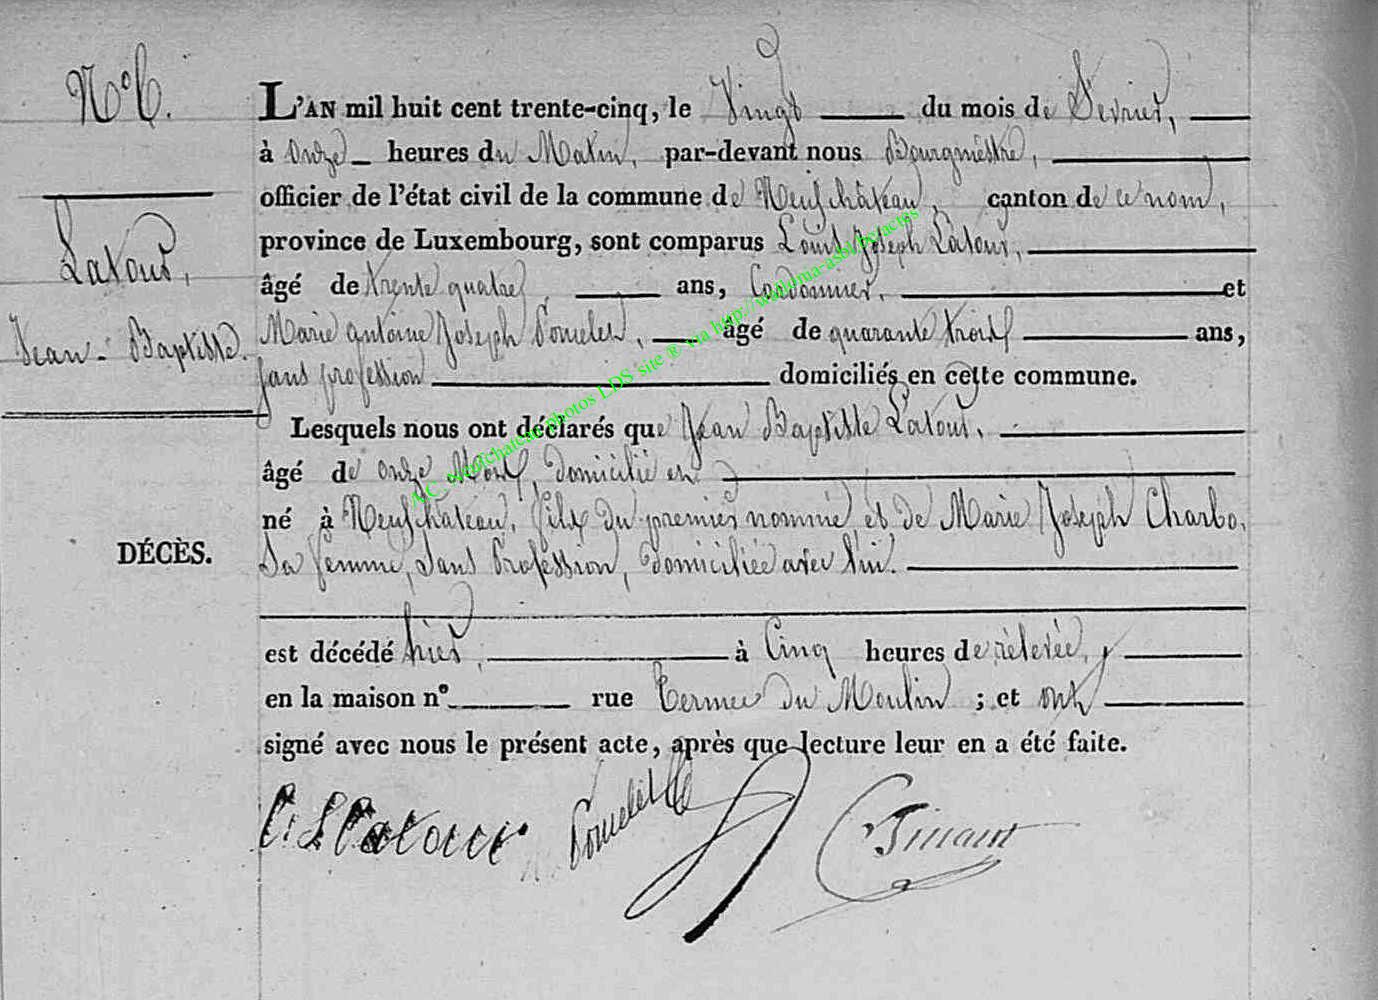 N° 6.
L'AN mil huit cent trente-cinq, le Vingt du mois de Fevrier,
à Onze heures du Matin, par-devant nous Bourgmestre,
officier de l'état civil de la commune de Neufchâteau, canton de ce nom,
province de Luxembourg, sont comparus Louis Joseph Latour,
âgé de trente quatre ans, Cordonnier, et
Marie antoine Joseph Poncelet, âgé de quarante trois ans,
sans profession domiciliés en cette commune.
Latour,
Jean-Baptiste.
Lesquels nous ont déclarés que Jean Baptiste Latour,
âgé de onze Mois, domicilié en
né à Neufchâteau, fils du premier nommé et de Marie Joseph Charlo,
DÉCÈS.
Sa femme, Sans Profession, domiciliée avec lui.
est décédé hier, à Cinq heures de rélevée,
en la maison n° rue Terme du Moulin ; et ont
signé avec nous le présent acte, après que lecture leur en a été faite.
Latour Poncelet
AC Neufchateau photos LDS site ® via http://walloma-asbl.be/actes